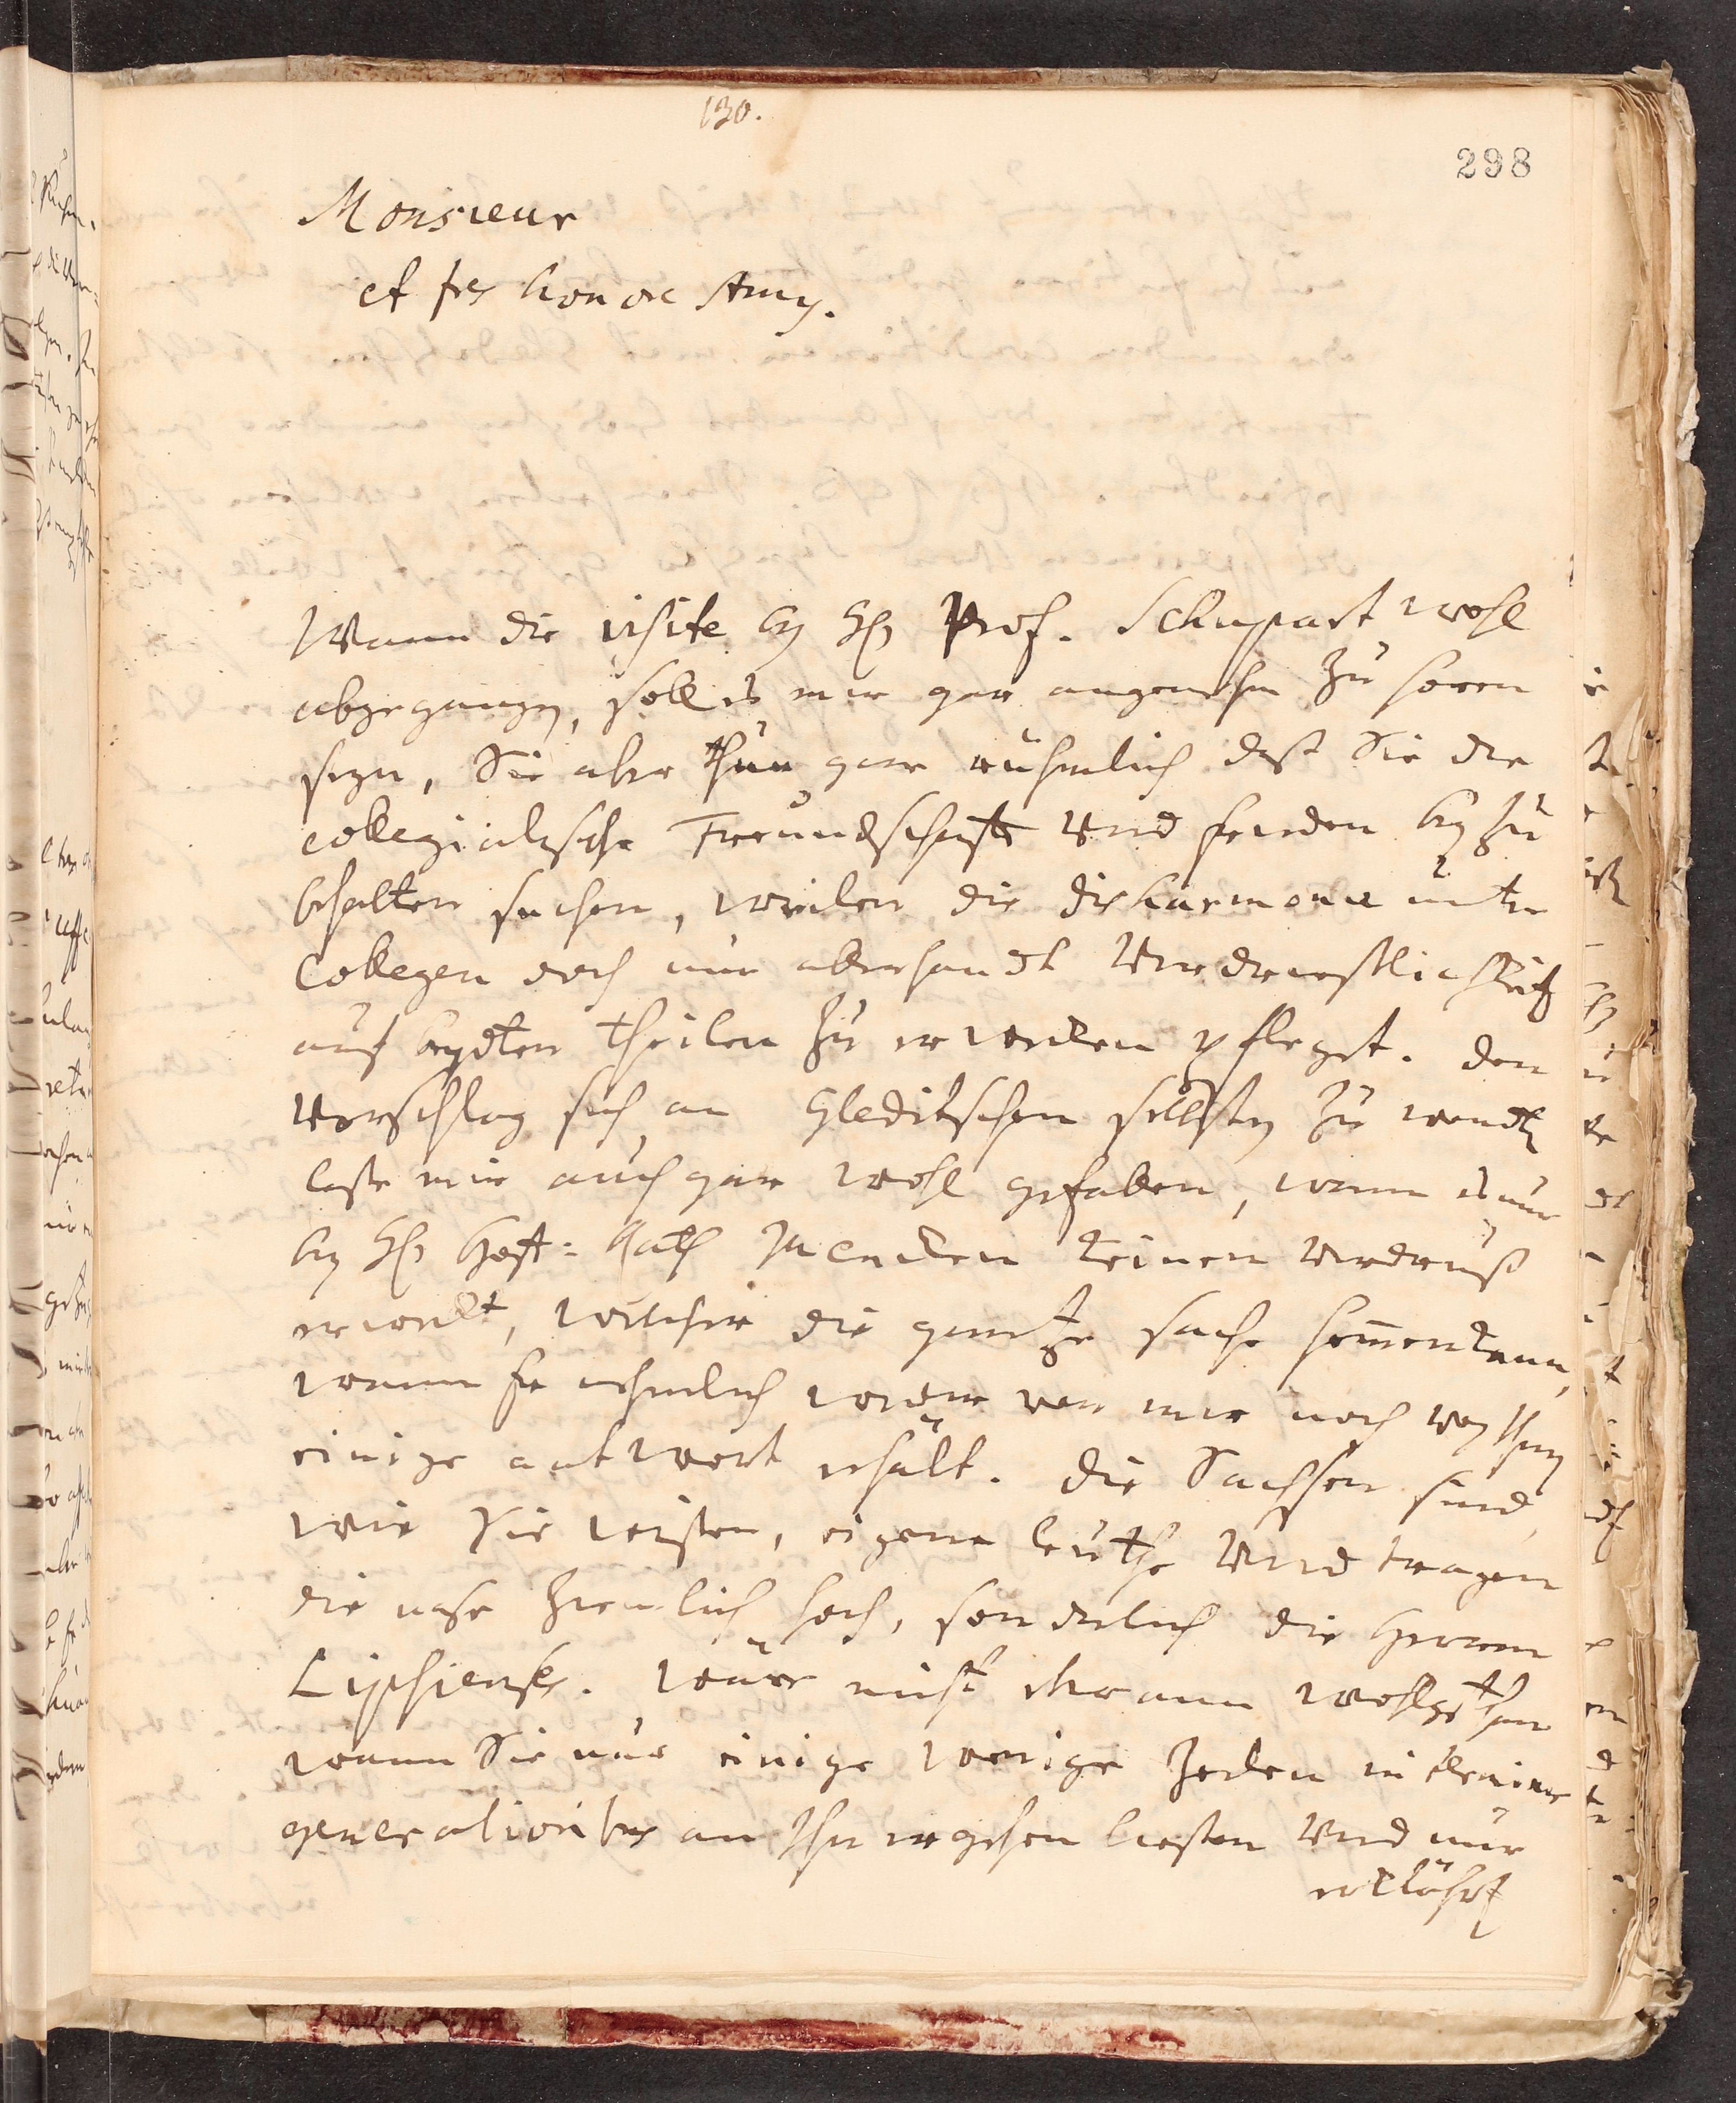 130.
298
Monsieur
et tres honoré Amy.
Wann die visite bey Hn Prof. Schupart wohl
abgegangen, soll es mir gar angenehm zu hören
seyn, Sie aber thun gar rühmlich daß Sie die
collegialische Freundschafft und frieden bey zu
behalten suchen, weilen die disharmonie unter
Collegen doch nur allerhandt Verdrießlichkeit
auf beydten theilen zu erwecken pfleget. den
Vorschlag sich an Gleditschen selbsten zu wenden
laße mir auch gar wohl gefallen, wann es nur
bey Hn Hoff-Rath Mencken keinen Verdruß
erweckt, welcher die gantze sache hemmen kann,
wann Er nehmlich weder von mir noch von Ihnen
einige antwort erhält. die Sachsen sind,
wie Sie wißen, eigene leuthe Und tragen
die nase ziemlich hoch, sonderlich die Herren
Lipsienses. Wäre nicht etwann wohlgethan
wann Sie nur einige wenige Zeilen in terminis
generalioribus an Ihn ergehen ließen Und nur
erklährt